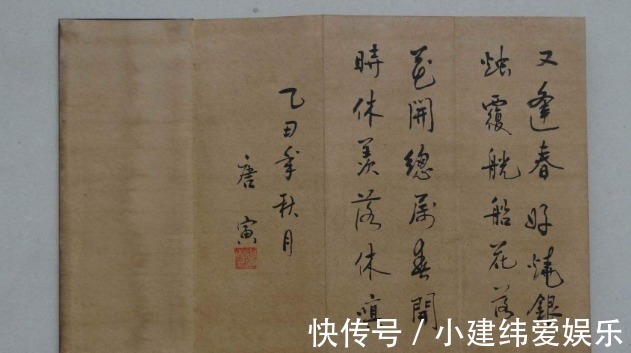 又逢春好燒銀
燭覆觥船花落
花開總屬春開
時休羨落休嗔
乙田年秋月
唐寅
快传号/小建纬爱娱乐